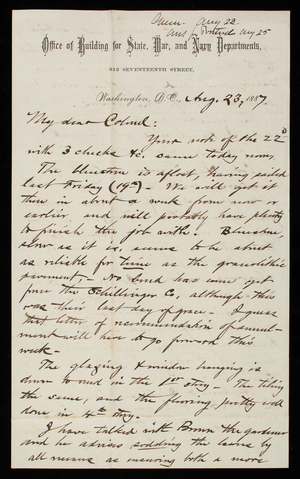 Aug 22
Office of Building for State, War, and Navy Departments,
616 SEVENTEENTH STREET,
Washington, D.C., Aug. 23, 1887.
My dear Colonel:
Your note of the 22d
with 3 checks &c. came today noon,
The bluestone is afloat, having sailed
last Friday (19th) - We will get it
then in about a week from now or
earlier and will probably have plenty
to finish the job with. Bluestone
slow as it is, seems to be about
as reliable for time as the granolithic
pavement - No bond has come yet
from the Schillinger Co, although this
was their last day of grace. I guess
that letter of recommendation of annul-
ment will have to go forward this
week -
The glazing & window hanging is
done to end in the 1st story. - The tiling
the same, and the flooring pretty well
done in 4th story.
I have talked with Brown the gardener
and he advises sodding the lawns by
all means as ensuring both a more